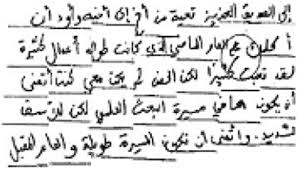 إلى الصديق العزيز تحية من أخ إلى أخيه وأود أن
أ عن العام الماضي الذي كانت طوله أعمال كثيرة
لقد تعبت كثيرا لكن لم يكن معي كنت أتمنى
أن يكون هنا في مسيرة البحث العلمي لكن للأسف
الشديد. وأتمنى أن تكون المسيرة طويلة والعام المقبل